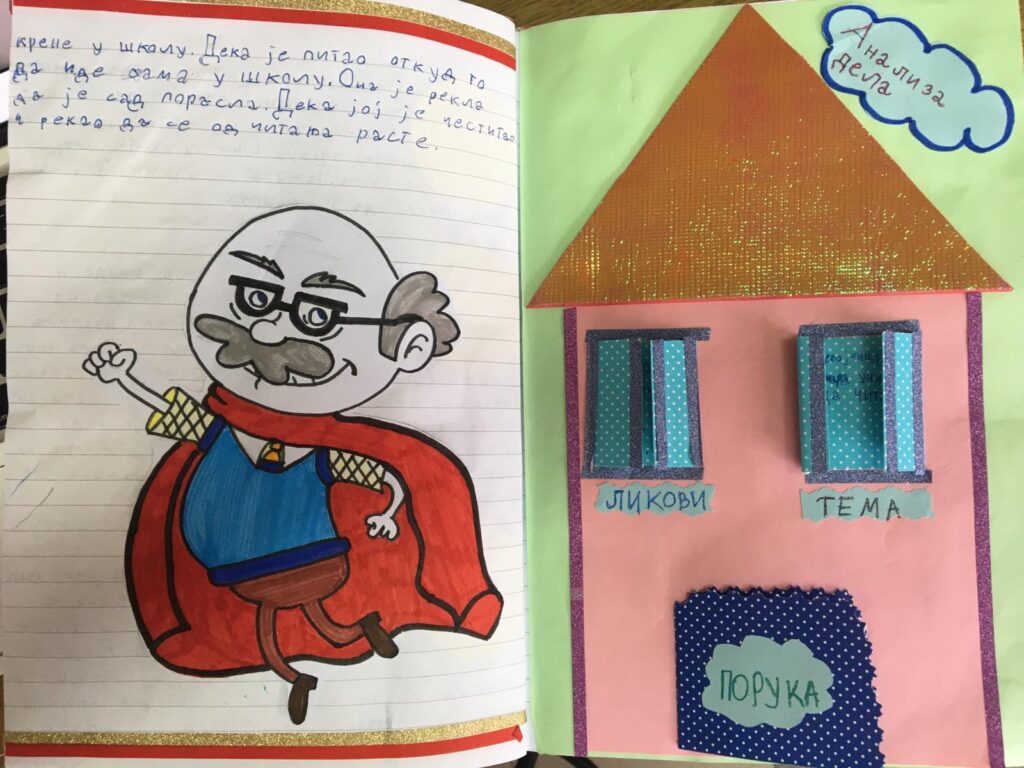 крене у школу. Дека је питао откуд то
да иде сама у школу. Она је рекла
да је сад порасла. Дека јој је честитао
и рекао да се од читања расте.
Анализа
дела
ЛИКОВИ
ТЕМА
ПОРУКА